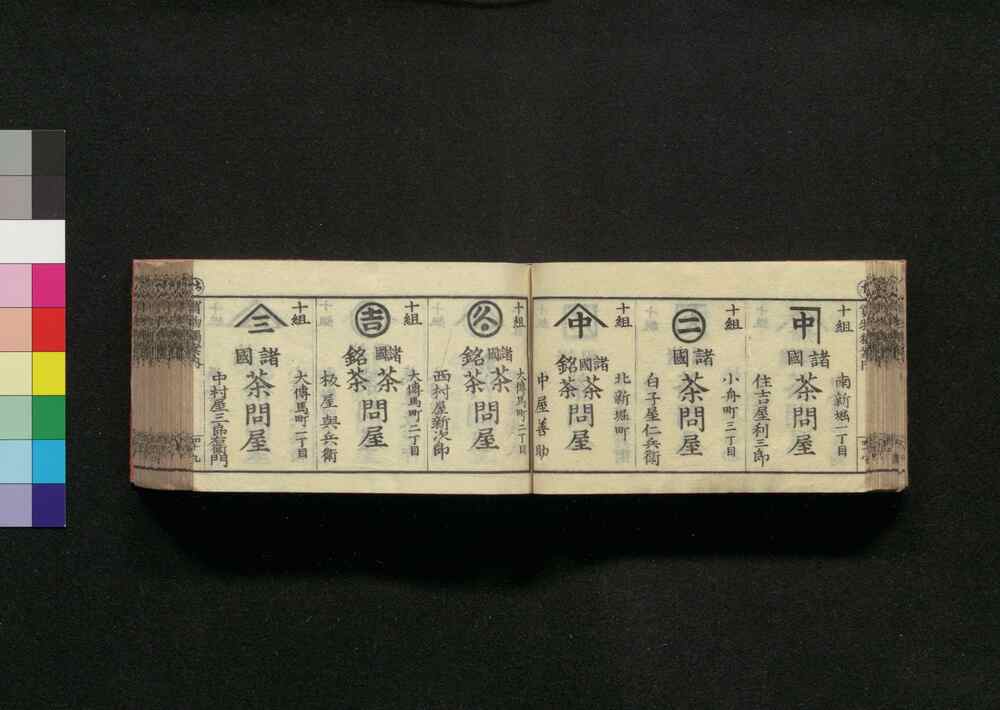 十組
南新堀一丁目
中
諸國
茶問屋
住吉屋利三郎
十組
小舟町三丁目
二
諸國
茶問屋
白子屋仁兵衛
十組
北新堀町
中
諸國茶
銘茶
問屋
中屋善助
十組
大傳馬町二丁目
諸國茶
銘茶
問屋
西村屋新次郎
十組
大傳馬町二丁目
吉
諸國茶
銘茶
問屋
板屋與兵衛
十組
大傳馬町二丁目
三
諸國
茶問屋
中村屋三郎右衛門